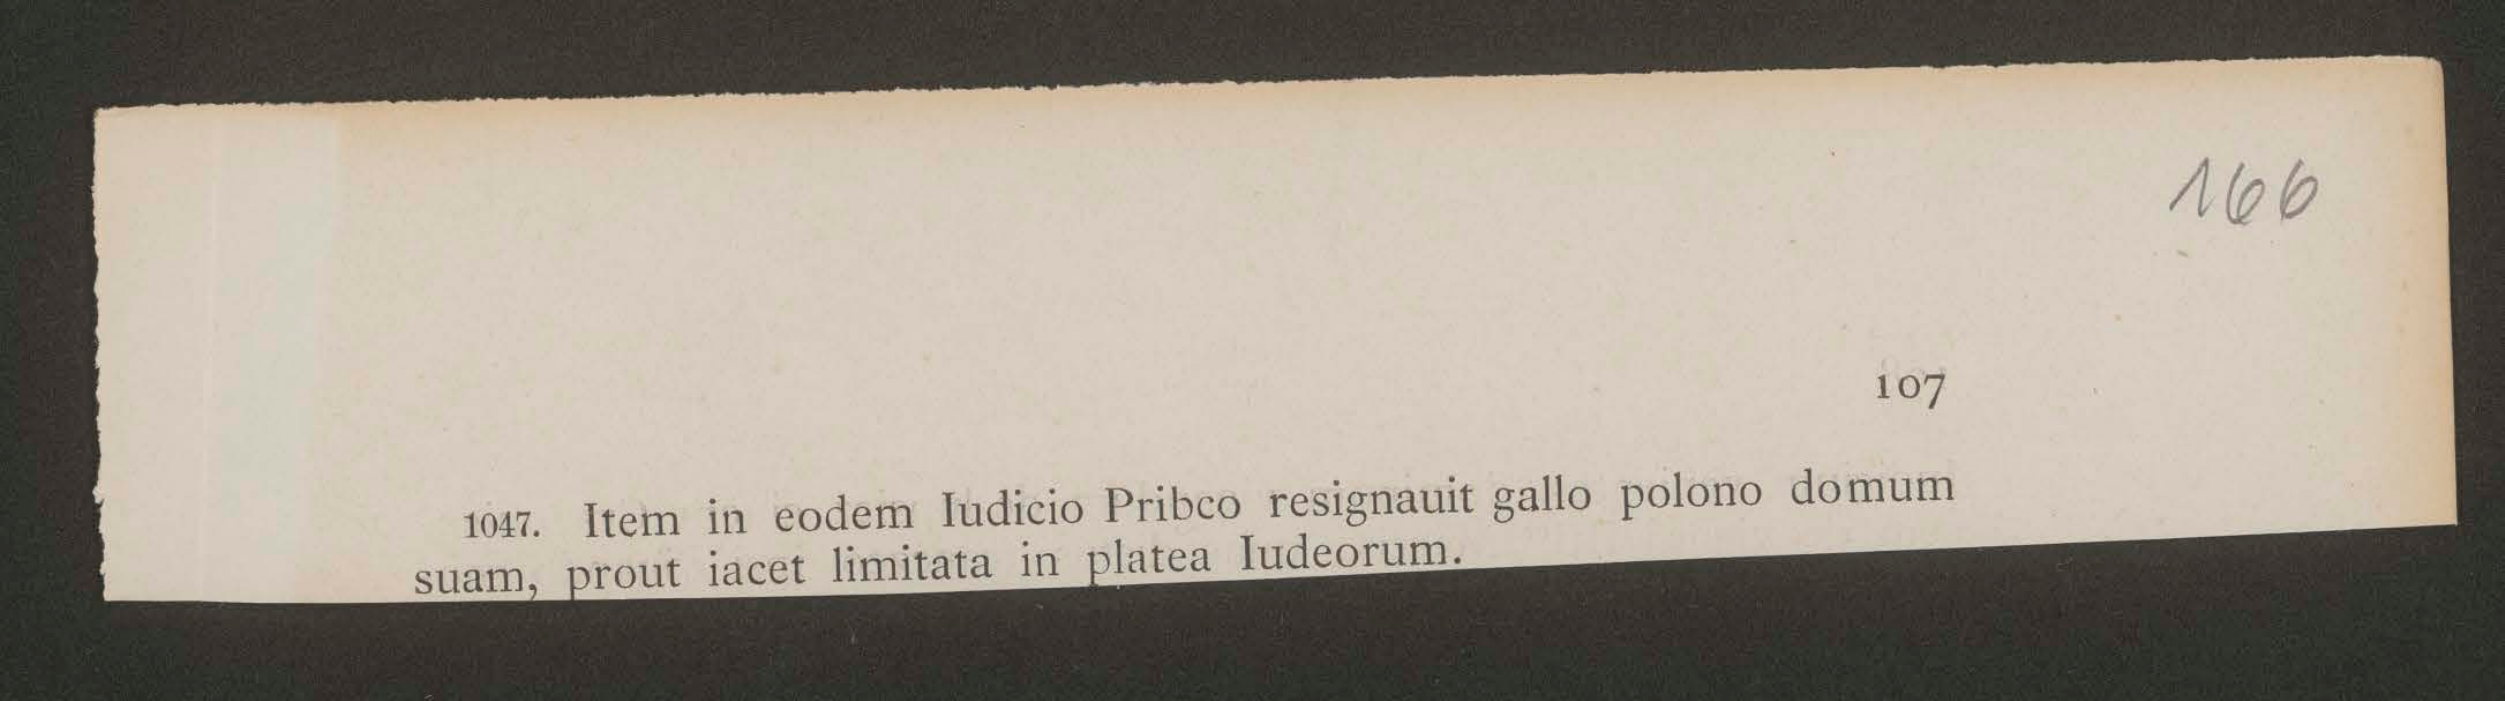 166
107
1047. Item in eodem Iudicio Pribco resignauit gallo polono domum
suam, prout iacet limitata in platea Iudeorum.